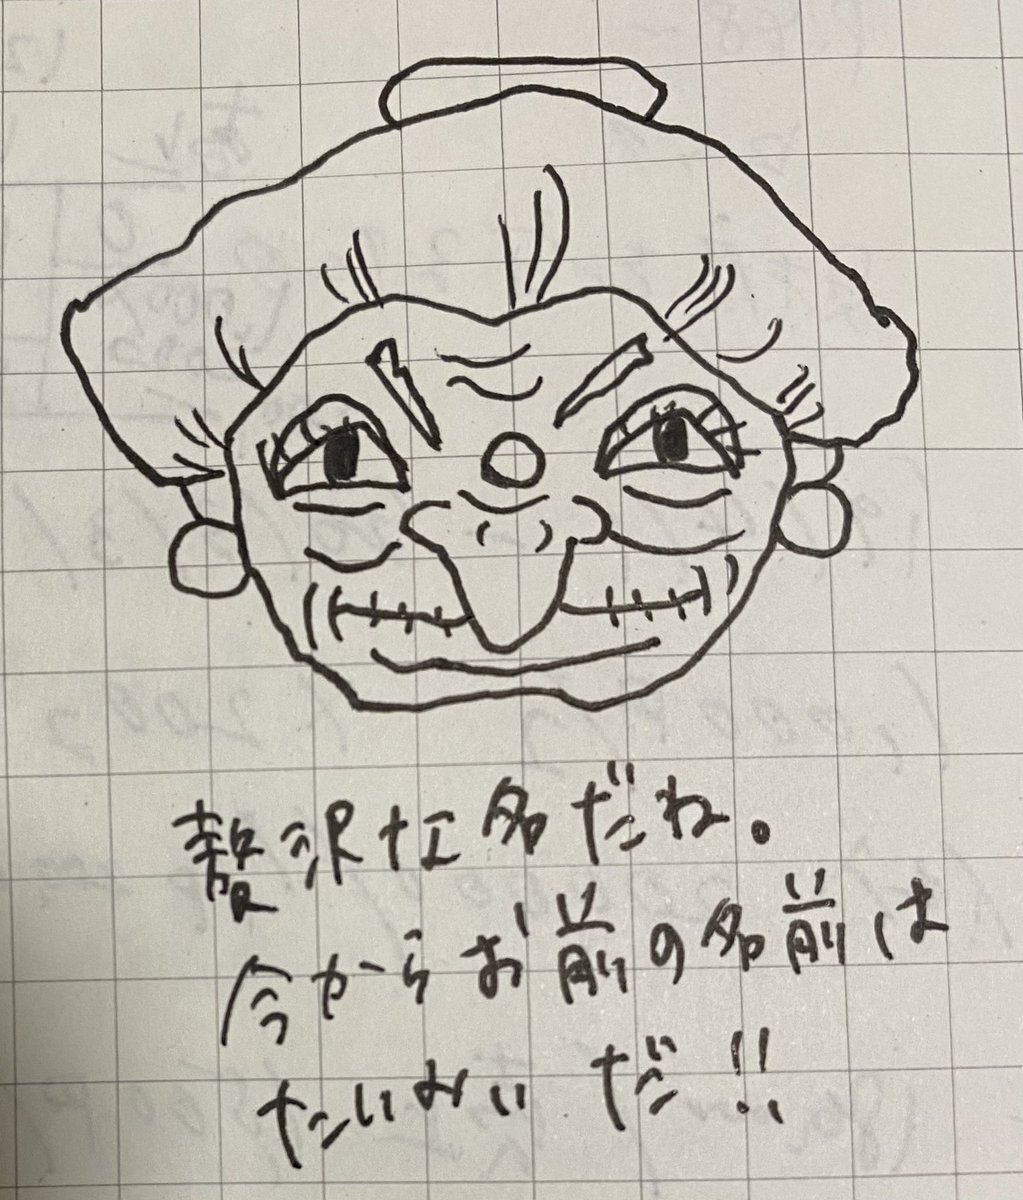 贅沢な名だね。
今からお前の名前は
たいみいだ!!